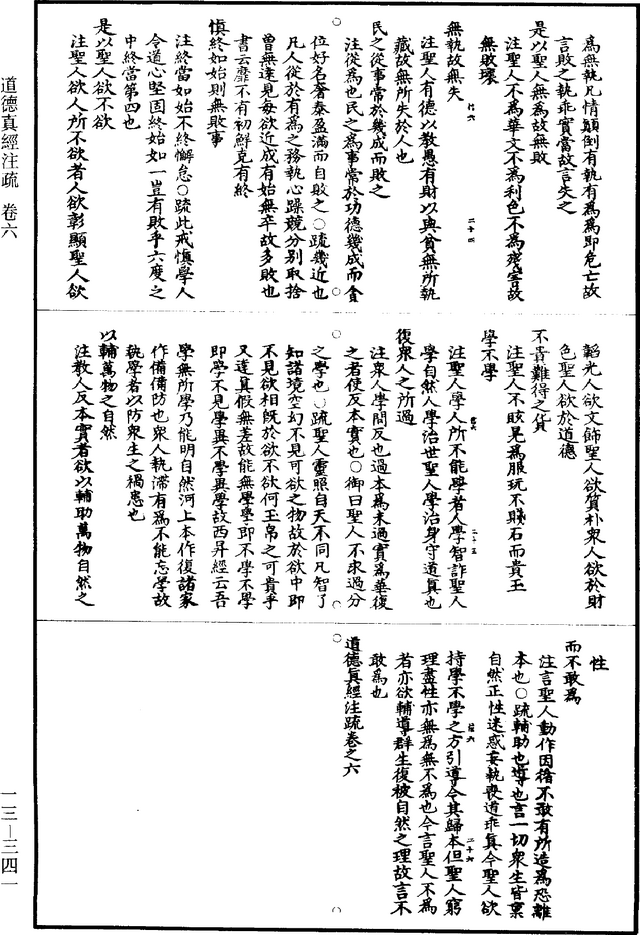 道德真經注疏 卷六
一三—三四一
爲無執凡情顛倒有執有爲爲即危亡故
言敗之執乖實當故言失之
是以聖人無爲故無敗
注聖人不爲華文不爲利色不爲殘害故
無敗壞
無執故無失
注聖人有德以教愚有財以與貧無所執
藏故無所失於人也
民之從事常於幾成而敗之
注從爲也民之爲事常於功德幾成而貪
位好名奢泰盈滿而自敗之○疏幾近也
凡人從於有爲之務執心躁競分別取捨
曾無達見每欲近成有始無卒故多敗也
書云靡不有初鮮克有終
慎終如始則無敗事
注終當如始不終懈怠○疏此戒慎學人
令道心堅固終始如一豈有敗乎六度之
中終當第四也
是以聖人欲不欲
注聖人欲人所不欲者人欲彰顯聖人欲
韜光人欲文飾聖人欲質朴衆人欲於財
色聖人欲於道德
不貴難得之貨
注聖人不眩晃爲服玩不賤石而貴玉
學不學
注聖人學人所不能學者人學智詐聖人
學自然人學治世聖人學治身守道真也
復衆人之所過
注衆人學問反也過本爲末過實爲華復
之者使反本實也○御曰聖人不求過分
之學也○疏聖人靈照自天不同凡智了
知諸境空幻不見可欲之物故於欲中即
不見欲相旣於欲不欲何玉帛之可貴乎
又達真假無差故能無學學即不學不學
即學不見學異不學異學故西昇經云吾
學無所學乃能明自然河上本作復諸家
作備備防也衆人執滯有爲不能忘學故
執學者以防衆生之禍患也
以輔萬物之自然
注敎人反本實者欲以輔助萬物自然之
性
而不敢爲
注言聖人動作因循不敢有所造爲恐離
本也○疏輔助也導也言一切衆生皆稟
自然正性迷惑妄執喪道乖真今聖人欲
持學不學之方引導令其歸本但聖人窮
理盡性亦無爲無不爲也今言聖人不爲
者亦欲輔導群生復彼自然之理故言不
敢爲也
道德真經注疏卷之六